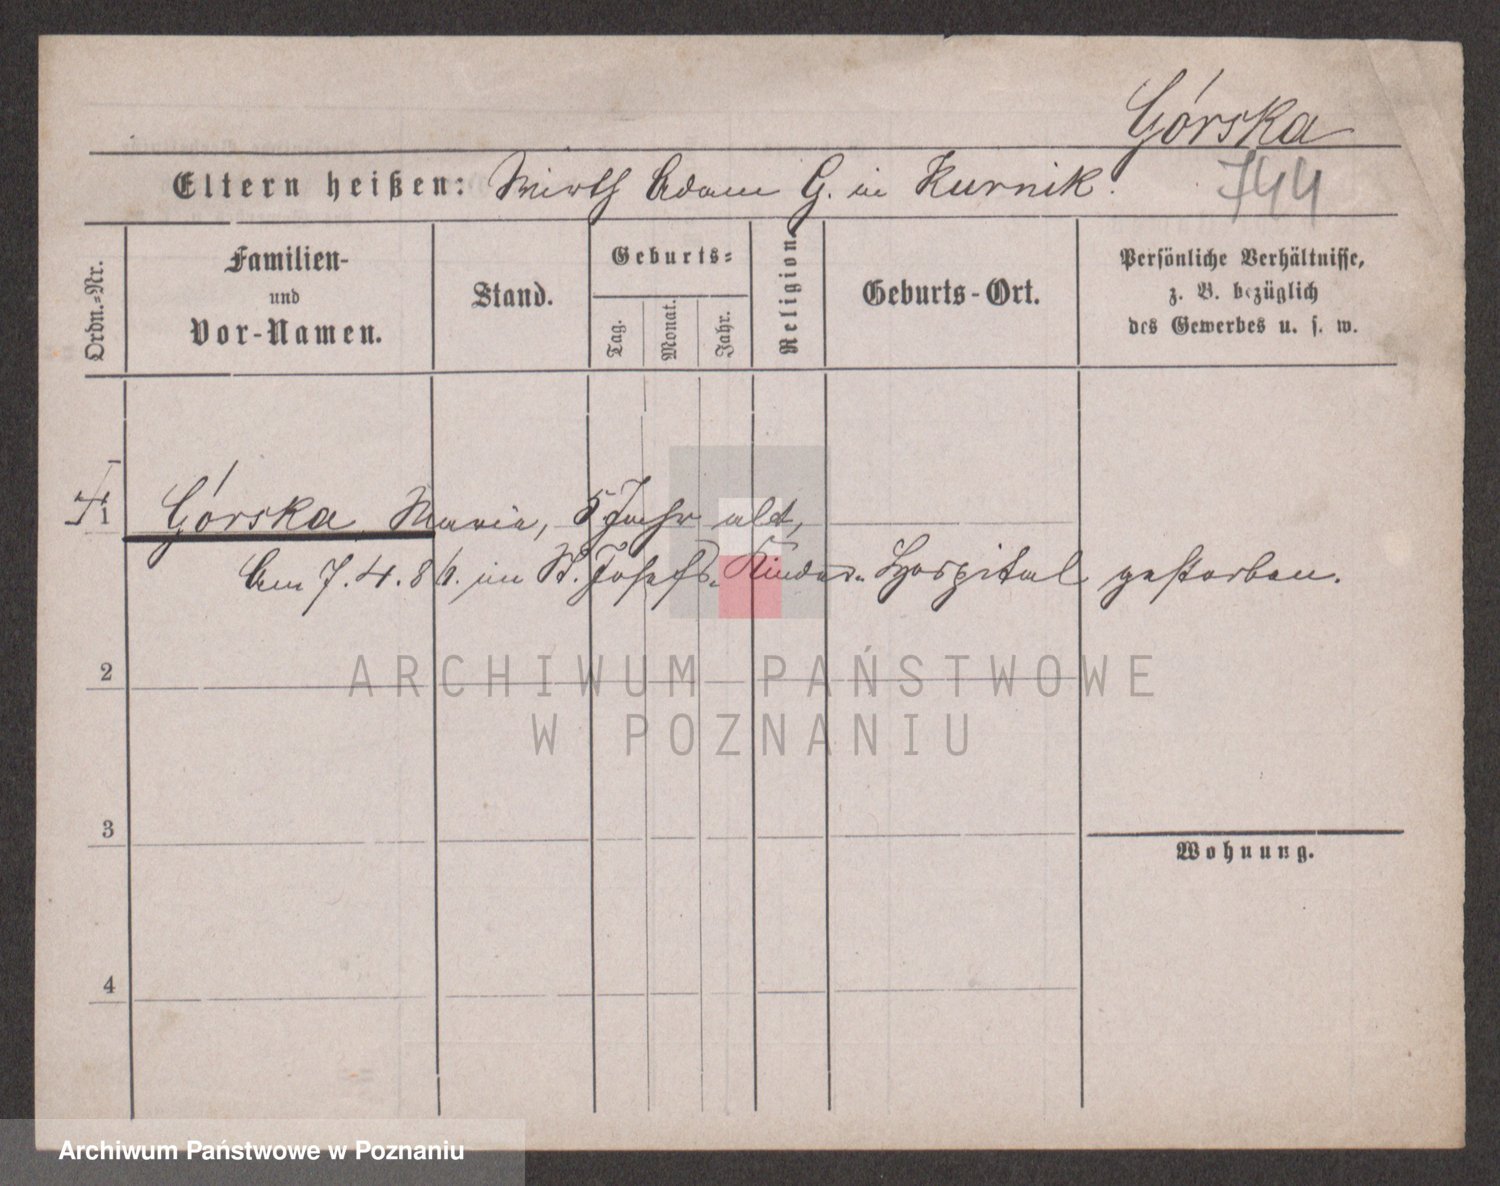 Górska
Eltern heißen: Wirth Adam G. in Kurnik.
744
Ordn.=Nr.
Familien-
und
Vor-Namen.
Stand.
Geburts=
Tag.
Monat.
Jahr.
Religion.
Geburts-Ort.
Persönliche Verhältnisse,
z. B. bezüglich
des Gewerbes u. s. w.
1 Górska Maria, 5 Jahr alt,
Am 7. 4. 86. im St. Josefs-Kinder-Hospital gestorben.
2
3
4
Wohnung.
ARCHIWUM PAŃSTWOWE
W POZNANIU
Archiwum Państwowe w Poznaniu